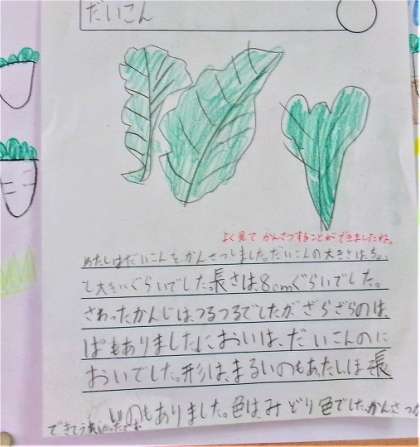 だいこん
よく見て かんさつすることができましたね。
わたしはだいこんをかんさつしました。だいこんの大きさは、ち。
し大きいぐらいでした。長さは、8cmぐらいでした。
さわったかんじは、つるつるでしたがざらざらのは
ぱもありました。においは、だいこんのに
おいでした。形は、まるいのもあたしは長
いのもありました。色はみどり色でした。かんさつ
できて